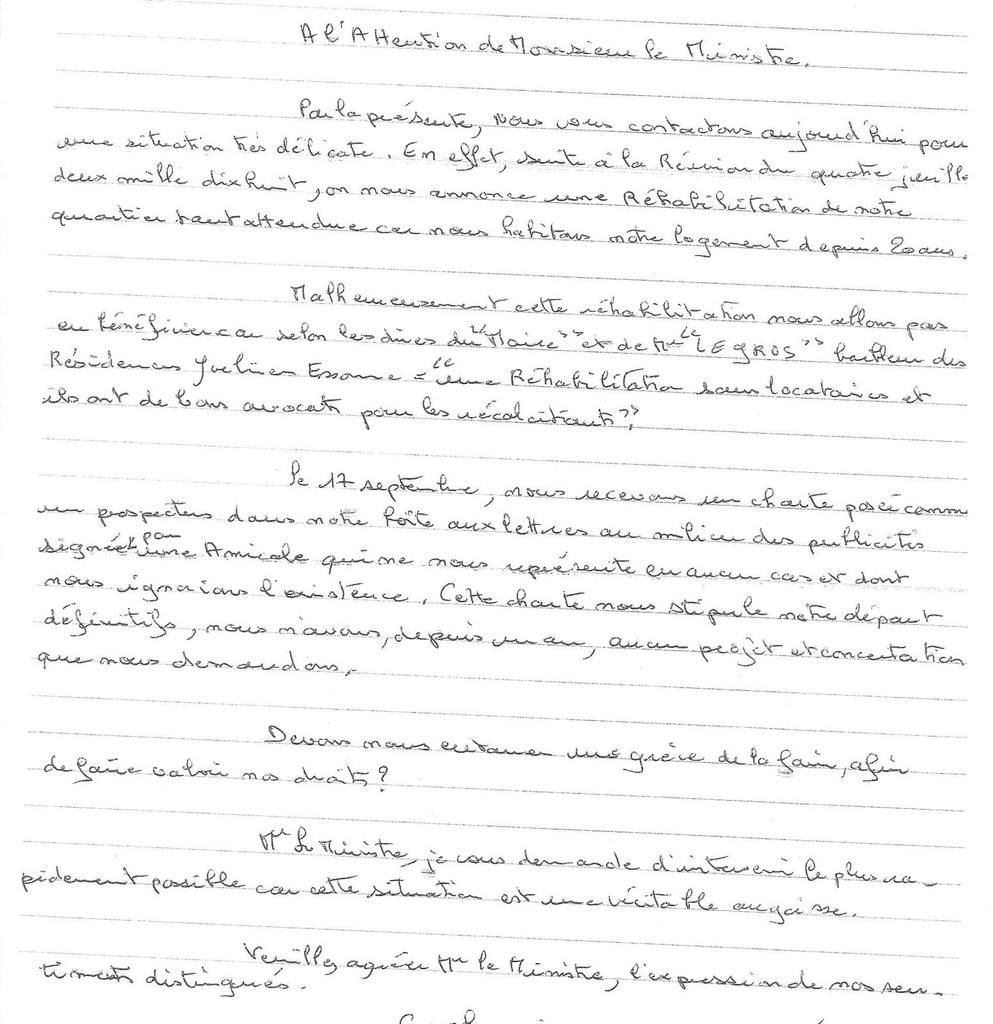 A l'Attention de Monsieur le Ministre.
Par la présente, nous vous contactons aujourd'hui pour
une situation très délicate. En effet, suite à la Réunion du quatre juillet
deux mille dixhuit, on nous annonce une Réhabilitation de notre
quartier tant attendue car nous habitons notre logement depuis 20 ans.
Malheureusement cette réhabilitation nous allons pas
en bénéficier car selon les dires du "Maire" et de Mr "LEGROS" bailleur des
Résidences Yvelines Essonne = "une Réhabilitation sans locataires et
ils ont de bons avocats pour les récalcitrants";
Le 17 septembre, nous recevons un charte posée comme
un prospectus dans notre boîte aux lettres au milieu des publicités
signée par une Amicale qui ne nous représente en aucun cas et dont
nous ignorions l'existence. Cette charte nous stipule notre départ
définitifs, nous n'avons, depuis un an, aucun projet et concertation
que nous demandons.
Devons nous entamer une grève de la faim, afin
de faire valoir nos droits?
Mr Le Ministre, je vous demande d'intervenir le plus ra-
pidement possible car cette situation est une véritable angoisse.
Veuillez agréer Mr le Ministre, l'expression de nos sen-
timents distingués.